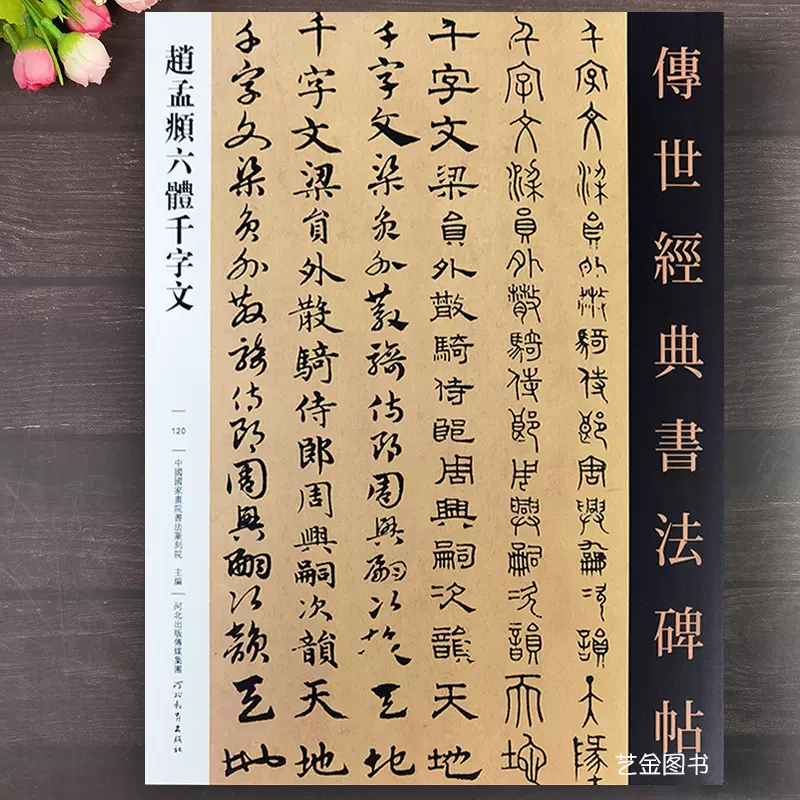 傳世經典書法碑帖
千字文梁員外散騎侍郎周興嗣次韻天
千字文梁員外散騎侍郎周興嗣次韻天地
千字文梁員外散騎侍郎周興嗣次韻天地
千字文梁員外散騎侍郎周興嗣次韻天地
千字文梁員外散騎侍郎周興嗣次韻天地
千字文梁員外散騎侍郎周興嗣次韻天地
趙孟頫六體千字文
120
中國國家畫院書法篆刻院 主編
河北出版傳媒集團
河北教育出版社
艺金图书